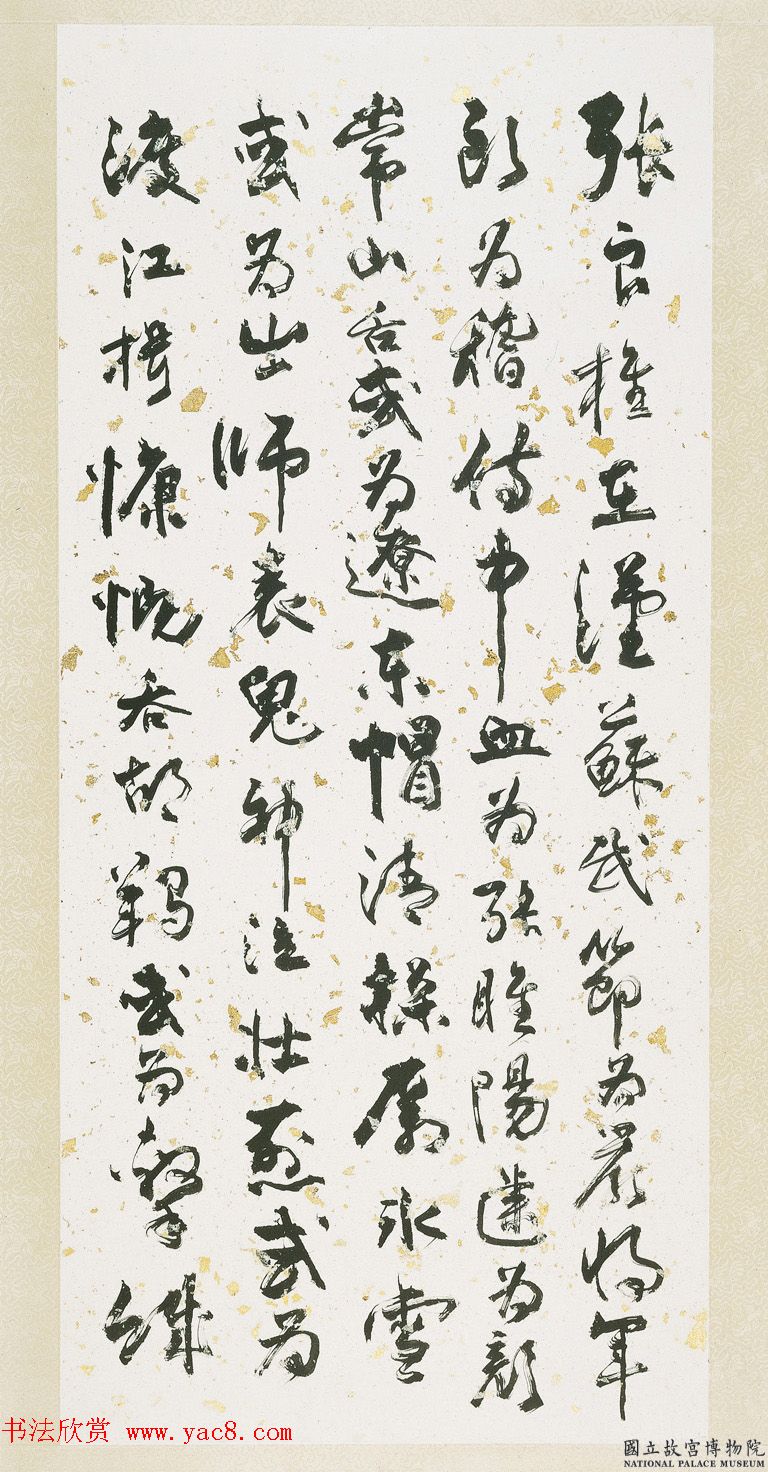 張良椎在漢蘇武節為嚴將軍
頭為稽侍中血為張睢陽齒為顏
常山舌或為遼東帽清操厲冰雪
或為出師表鬼神泣壯烈或為
渡江楫慷慨吞胡羯或為擊賊
书法欣赏 www.yac8.com
國立故宮博物院
NATIONAL PALACE MUSEUM